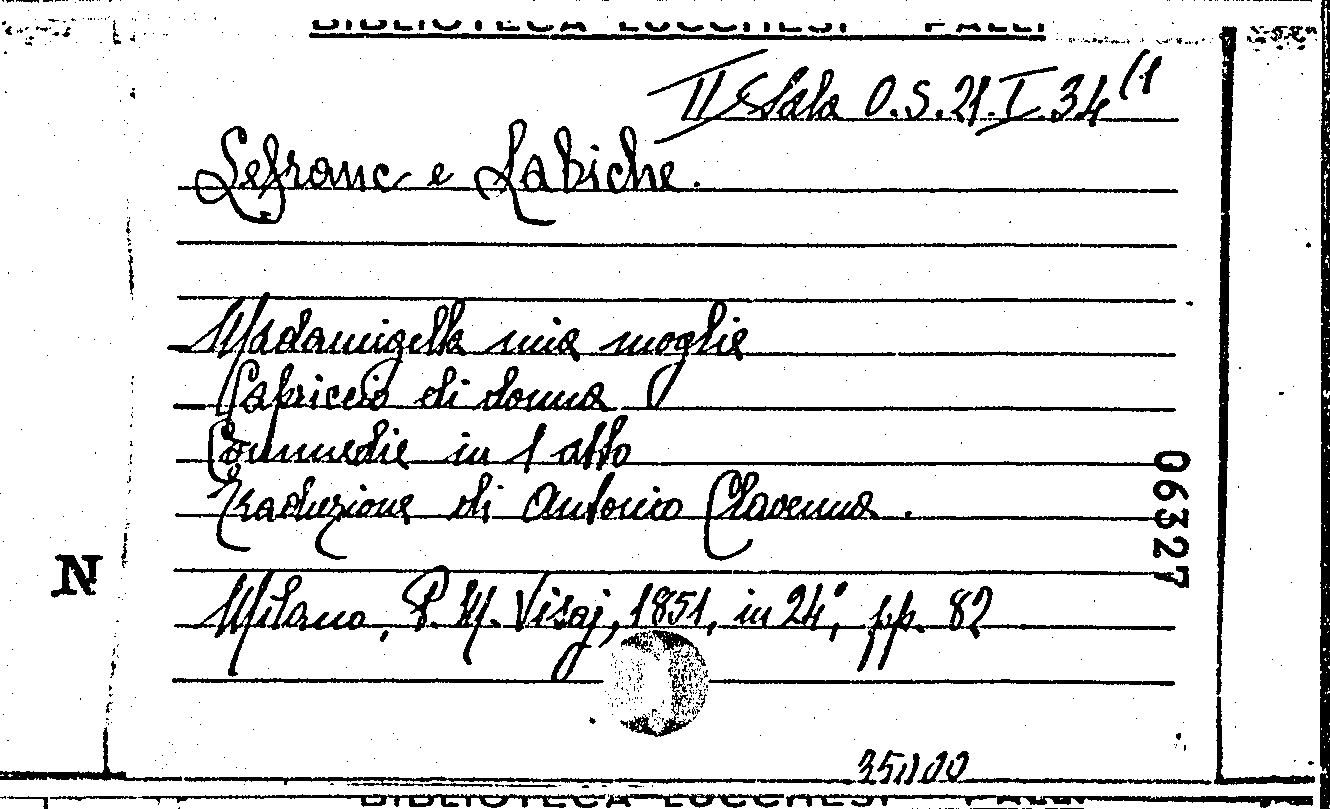 BIBLIOTECA LUCCHESI - PALLI
II Sala O.S.21.I.34(1
Lefranc e Labiche.
Madamigella mia moglie
Capriccio di donna
Commedie in 1 atto
Traduzione di Antonio Clavenna.
06327
N
Milano, P. M. Visaj, 1851, in 24°, pp. 82
BIBLIOTECA LUCCHESI - PALLI